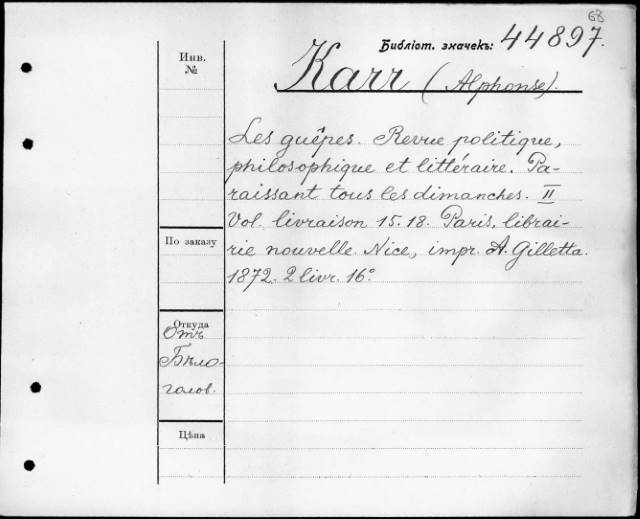 68
Библіот. значекъ: 44897.
Karr (Alphonse).
Инв.
№
Les guêpes. Revue politique,
philosophique et littéraire. Pa-
raissant tous les dimanches. II
Vol. livraison 15.18. Paris, librai-
rie nouvelle. Nice, impr. A. Gilletta.
1872. 2 livr. 16°.
По заказу
Откуда
Отъ
Бѣло-
голов.
Цѣна